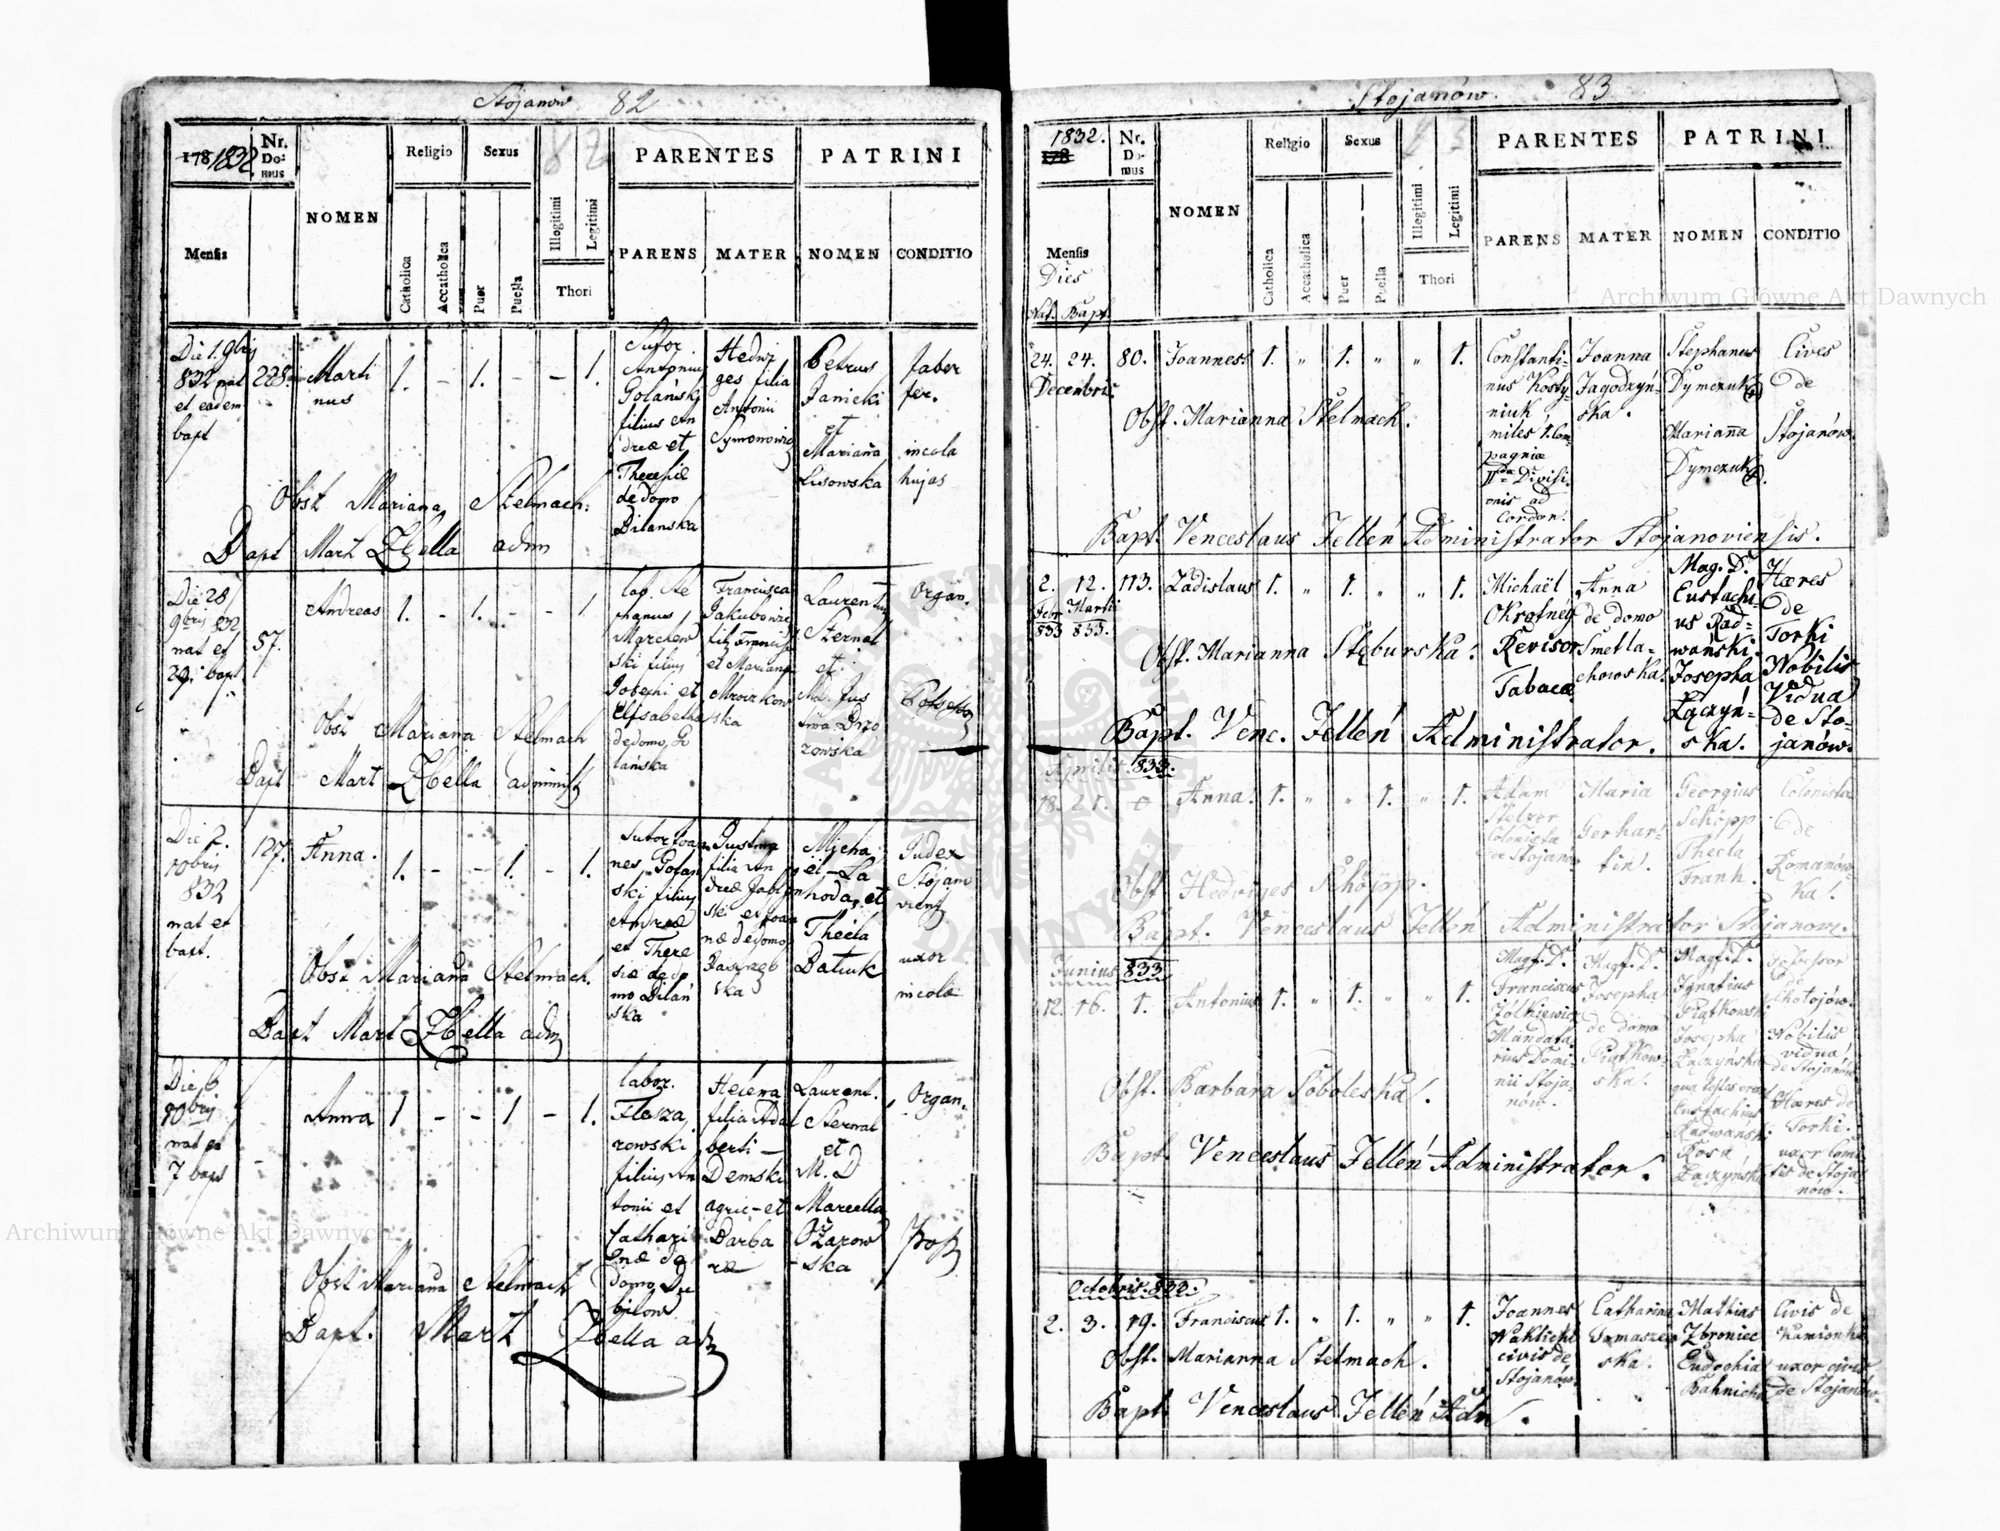 Stojanów 82
178 1832
Nr. Do: mus
NOMEN
Religio
Sexus
82
PARENTES
PATRINI
Mensis
Catholica
Accatholica
Puer
Puella
Illegitimi
Legitimi
Thori
PARENS
MATER
NOMEN
CONDITIO
Die 1. 9bris
832 nat
et eadem
bapt
228.
Marti
nus
1. - 1. - - 1.
Sutor
Antonius
Golański
filius An
dreæ et
Theresiæ
de domo
Bilanska
Hedwi
ges filia
Antonii
Symonowicz
Petrus
Janicki
et
Marianna
Lisowska
faber
fer.
incola
hujas
Obst Mariana Stelmach.
Bapt Mart Zbella adm
Die 28
9bris 832
nat et
29. bapt
57.
Andreas
1. - 1. - - 1
lab. Ste
phanus
Marchew
ski filius
Josephi et
Elisabetha
de domo Go
lańska
Francisca
Jakubowicz
filia Francisci
et Mariana
ska
Laurentius
Sternal
et
rowska
Organ.
Obst Mariana Stelmach
Bapt Mart Zbella administ
Die 2.
10bris
832
nat et
bapt.
127.
Anna.
1. - - 1. - 1.
Sutor Joan
nes Golań
ski filius
Andreæ
et There
siæ de do
mo Bilań
ska
Justina
filia An
dreæ Jabłoń
ski et Joan
næ de domo
Jastrzęb
ska
Micha
ël La
hoda, et
Thecla
Batiuk
Judex
Stojano
viens
uxor
incola
Obst Mariana Stelmach.
Bapt Mart Zbella adm
Die 6
10bris
nat et
7 bapt
-
Anna
1 - - 1 - 1.
labor.
rowski
filius An
tonii et
Cathari
næ de
domo
Helena
filia Adal
berti
Demski
agric et
Barba
ræ
Laurent.
Sternal
et
M. D
Marcella
Ożarow
ska
Organ.
Obst Mariana Stelmach
Bapt. Mart Zbella adm
Stojanów. 83
1832.
178
Nr. Do- mus
NOMEN
Religio
Sexus
83
PARENTES
PATRINI
Mensis
Dies
Nat. Bapt.
Catholica
Accatholica
Puer
Puella
Illegitimi
Legitimi
Thori
PARENS
MATER
NOMEN
CONDITIO
24. 24. 80. Joannes 1. " 1. " " 1.
Decembris.
Constanti-
nus Kosty-
niuk
miles 1. Com
pagniæ
IIdæ Divisi
onis ad
Cordon.
Joanna
Jagodzyń-
ska.
Stephanus
Dymczuk
Marianna
Dymczuk
Cives
de
Stojanów.
Obst. Marianna Stelmach.
Bapt. Venceslaus Jellén Administrator Stojanoviensis.
2. 12. 113. Ladislaus 1. " 1. " " 1.
Febr Martii
833 833.
Michaël
Okrętney
Revisor
Tabacæ
Anna
de domo
Smetla-
chowska.
Mag. D.
Eustachi-
us Rad-
wański.
Josepha
Łączyń-
ska.
Hæres
de
Torki
Nobilis
Vidua
de Sto-
janów.
Obst. Marianna Stęburska.
Bapt. Venc. Jellén Administrator.
Aprilis 833.
18. 21. 0 Anna. 1. " " 1. " 1.
Adam
Stelzer
Colonista
de Stojanów
Maria
Gerhar-
tin.
Georgius
Schöpp
Thecla
Franh.
Colonista
de
Romanów-
ka.
Obst. Hedviges Schöpp.
Bapt. Venceslaus Jellén Administrator Stojanow.
Junius 833
12. 16. 1. Antonius 1. " 1. " " 1.
Magf. D.
Franciscus
Żółkiewicz
Mandata-
rius Domi-
nii Stoja-
nów.
Magf. D.
Josepha
de domo
Piątkow-
ska.
Magf. D.
Ignatius
Piątkowski
Josepha
Łaczynska
qua testes erat
Eustachius
Radwański
Rosa
Łączyńska
Possessor
Chotojów.
Nobilis
vidua
de Stojanów
Hæres de
Torki.
uxor
de Stoja
now.
Obst. Barbara Soboleska.
Bapt. Venceslaus Jellén Administrator.
Octobris 833.
2. 3. 19. Franciscus 1. " 1. " " 1.
Joannes
civis de
Stojanów.
Catharina
Tomaszew
ska.
Mathias
Zbroniec
Eudochia
Civis de
Kamionka
uxor civis
de Stojanów.
Obst. Marianna Stelmach.
Bapt. Venceslaus Jellén Adm.
Archiwum Główne Akt Dawnych
Archiwum Główne Akt Dawnych